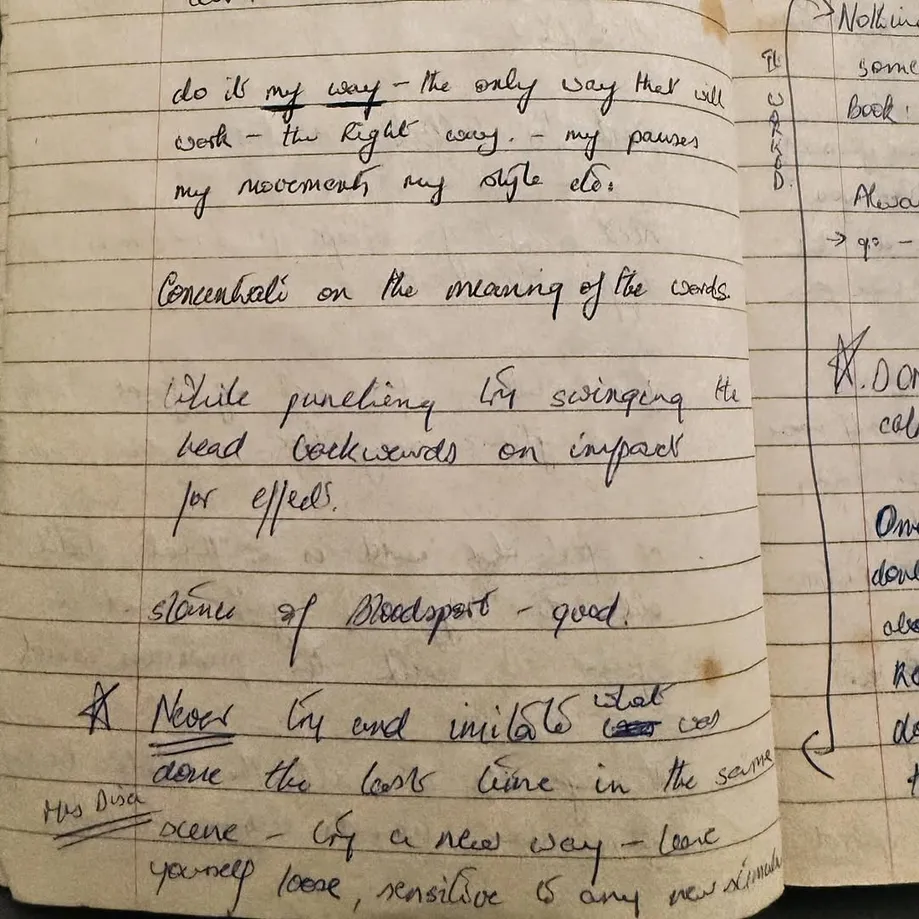 do it my way - the only way that will
work - the Right way. - my pauses
my movements my style etc.
Concentrate on the meaning of the words.
While punching try swinging the
head backwards on impact
for effects.
stance of Bloodsport - good.
Never try and imitate what was
done the last time in the same
scene - try a new way - loose
yourself loose, sensitive to any new
WORKED.
Nothin
some
Book.
Alwa
DON